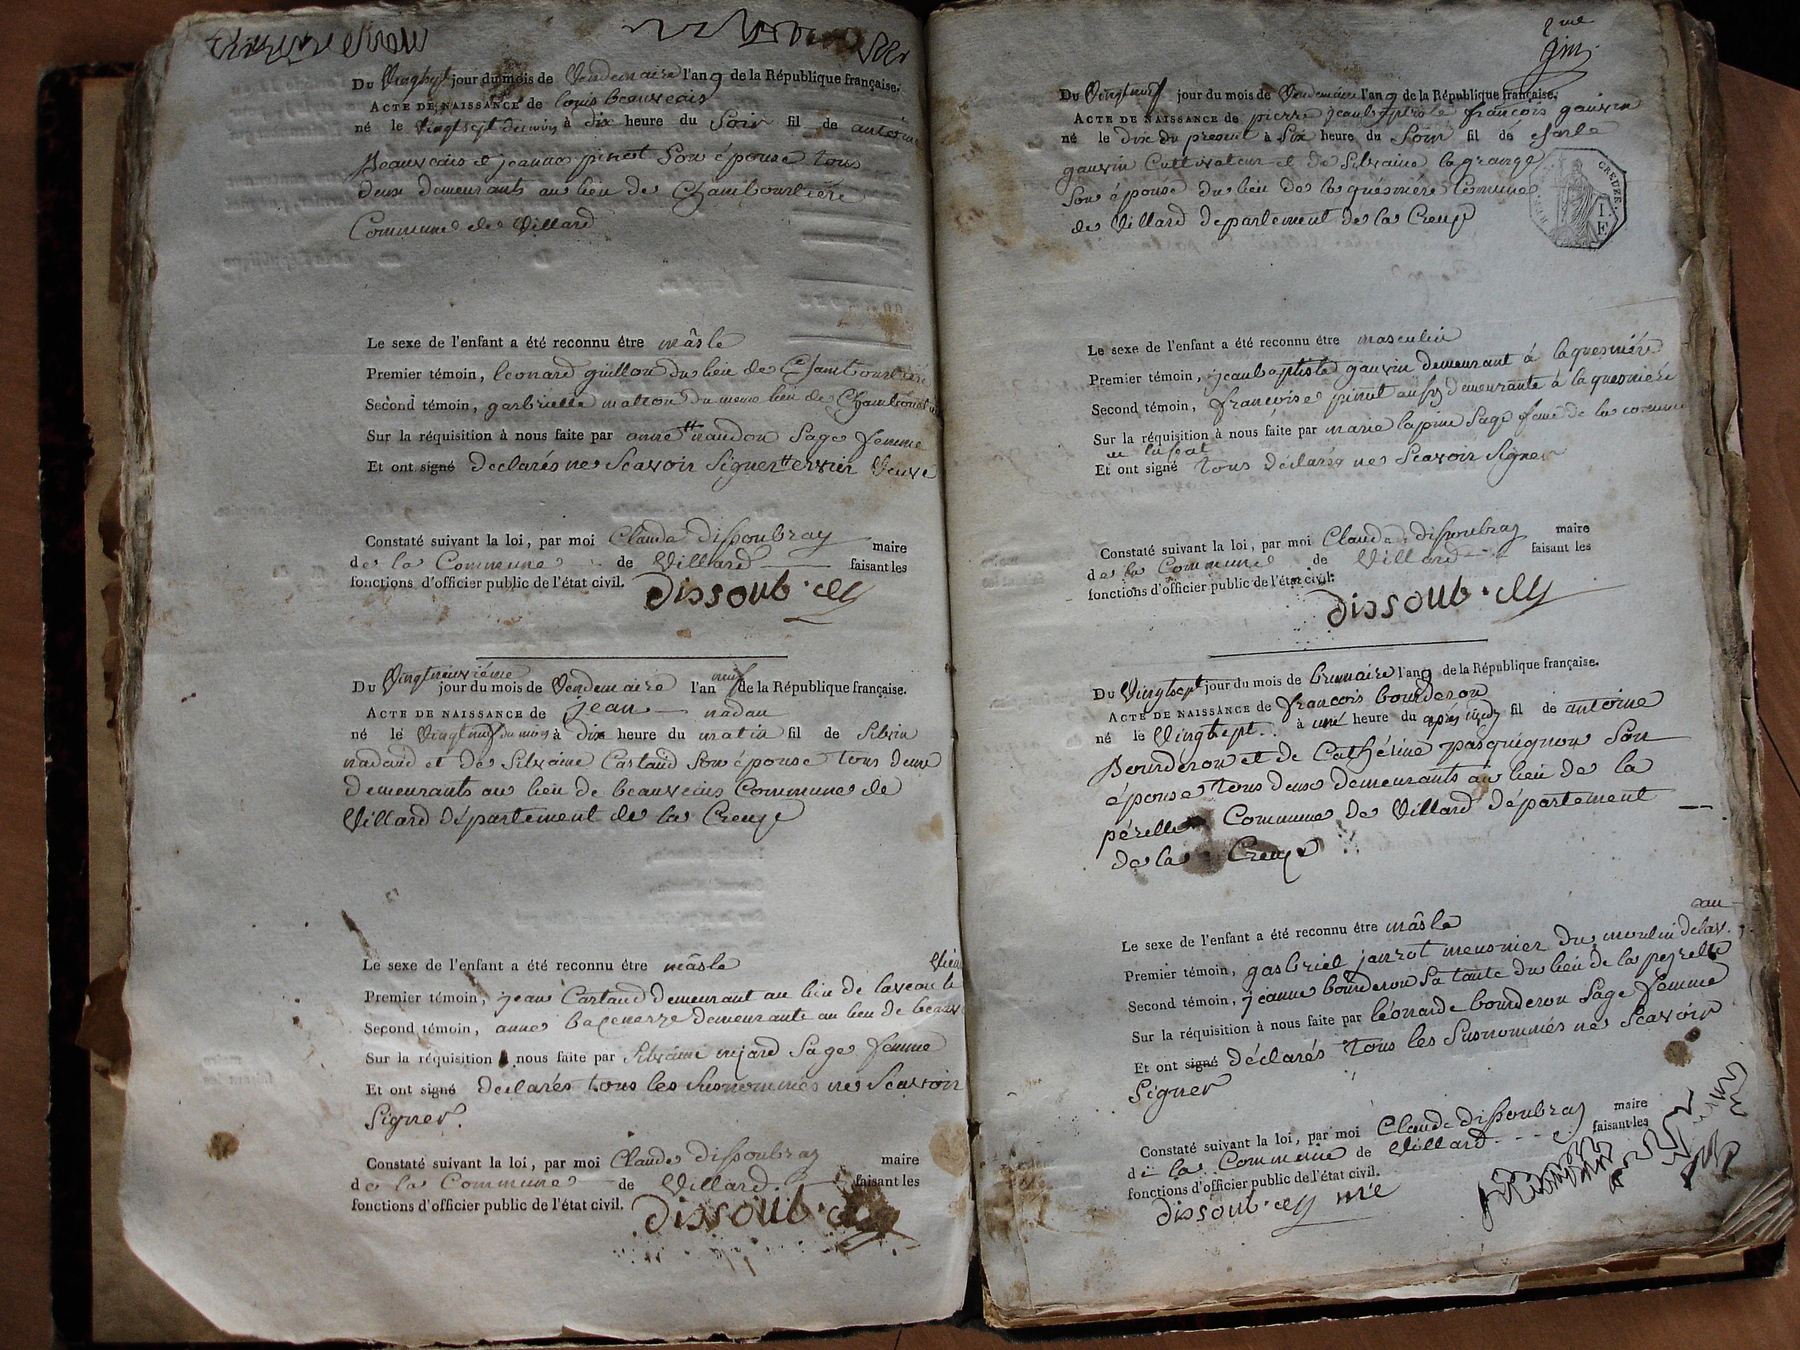 Du Vingthuit jour du mois de Vendemaire l'an 9 de la République française.
ACTE DE NAISSANCE de louis beauveais
né le Vingtsept du mois à dix heure du Soir fil de antoine
Beauveais et jeanne pinot Son épouse tous
deux demeurants au lieu de Chambourliere
Commune de Villard
Le sexe de l'enfant a été reconnu être mâsle
Premier témoin, leonard guillon du lieu de
Second témoin, gasbrielle du meme lieu de
Sur la réquisition à nous faite par anne naudon Sage femme
Et ont signé declarés ne Scavoir Signer Veuve
Constaté suivant la loi, par moi Claude dissoubray maire
de la Commune de Villard faisant les
fonctions d'officier public de l'état civil. dissoubray
Du Vingtneuviéme jour du mois de Vendemaire l'an neuf de la République française.
ACTE DE NAISSANCE de jean nadau
né le Vingtneuf du mois à dix heure du matin fil de Silvin
nadaud et de Silvaine Cartaud Son épouse tous deux
demeurants au lieu de beauveais Commune de
Villard département de la Creuse
Le sexe de l'enfant a été reconnu être mâsle
Premier témoin, jean Cartaud demeurant au lieu de
Second témoin, anne demeurante au lieu de
Sur la réquisition à nous faite par Silvaine mjard Sage femme
Et ont signé declarés tous les Susnommés ne Scavoir
Signer.
Constaté suivant la loi, par moi Claude dissoubray maire
de la Commune de Villard faisant les
fonctions d'officier public de l'état civil. dissoubray
Du Vingtneuf jour du mois de Vendemaire l'an 9 de la République française.
ACTE DE NAISSANCE de pierre jeanbaptiste françois gauvin
né le dix du present à Six heure du Soir fil de charle
gauvin Cultivateur et de Silvaine lagrange
Son épouse du lieu de la quesniére Commune
de Villard departement de la Creuse
CREUZE
Le sexe de l'enfant a été reconnu être masculin
Premier témoin, jeanbaptiste gauvin demeurant à laquesniére
Second témoin, françoise pinot aussy demeurante à la quesniére
Sur la réquisition à nous faite par marie lapine Sage feme de la comune
Et ont signé tous déclarés ne Scavoir Signer
Constaté suivant la loi, par moi Claude dissoubray maire
de la Commune de Villard faisant les
fonctions d'officier public de l'état civil.
dissoubray
Du Vingtsept jour du mois de brumaire l'an 9 de la République française.
ACTE DE NAISSANCE de françois bourderon
né le Vingtsept à une heure du après midy fil de antoine
Bourderon et de Cathérine pasquignon Son
épouse tous deux demeurants au lieu de la
pérelle Commune de Villard département
de la Creuse
Le sexe de l'enfant a été reconnu être mâsle
Premier témoin, gasbriel janrot meusnier du moulin
Second témoin, jeanne bourderon Sa tante du lieu de la peyrelle
Sur la réquisition à nous faite par léonarde bourderon Sage femme
Et ont signé déclarés tous les Susnommés ne Scavoir
Signer
Constaté suivant la loi, par moi Claude dissoubray maire
de la Commune de Villard faisant les
fonctions d'officier public de l'état civil.
dissoubray me